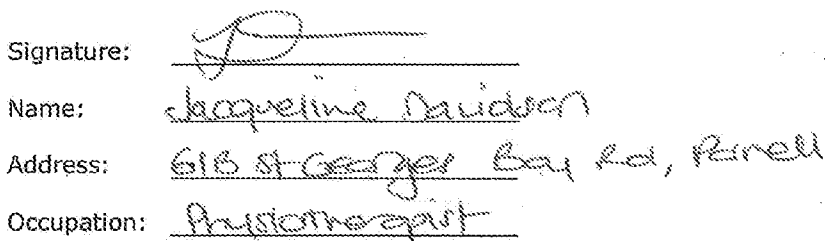 Signature:
Name: Jacqueline Davidson
Address: 61B St Georges Bay Rd, Parnell
Occupation: Physiotherapist